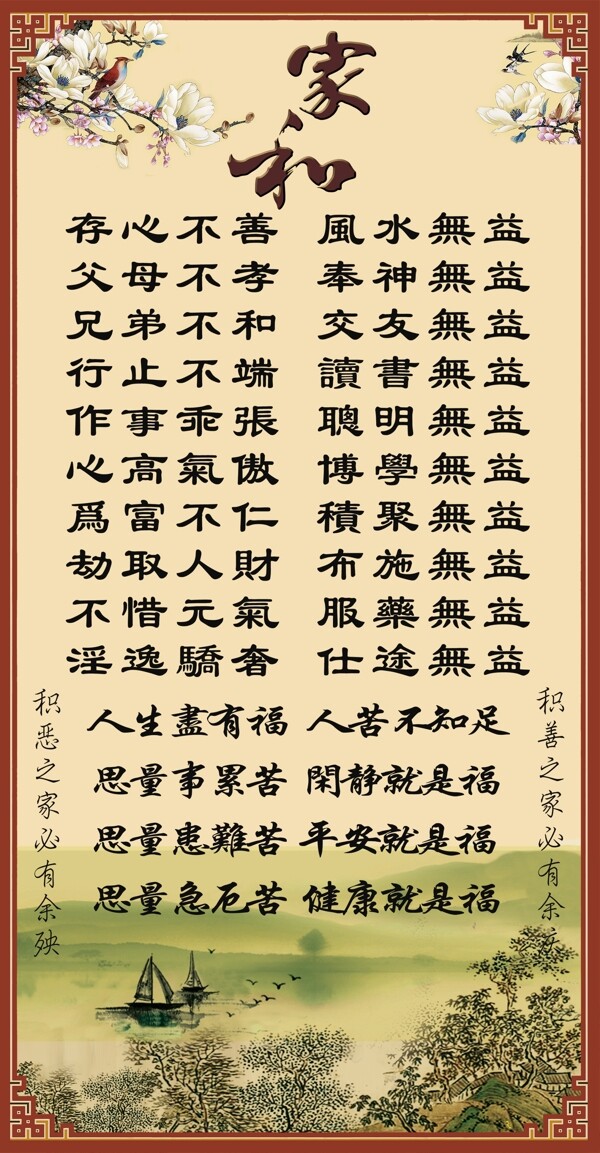 家和
存心不善 風水無益
父母不孝 奉神無益
兄弟不和 交友無益
行止不端 讀書無益
作事乖張 聰明無益
心高氣傲 博學無益
爲富不仁 積聚無益
劫取人財 布施無益
不惜元氣 服藥無益
淫逸驕奢 仕途無益
人生盡有福 人苦不知足
思量事累苦 閑静就是福
思量患難苦 平安就是福
思量急厄苦 健康就是福
积善之家必有余庆
积恶之家必有余殃